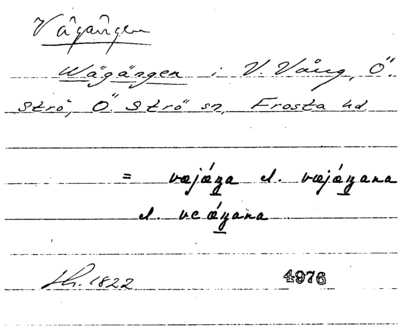 Vägången
Wägången i V. Vång, Ö.
Strö, Ö. Strö sn, Frosta hd
= væjáŋa el. væjáŋana
el. veáŋana
Lh. 1822 4976